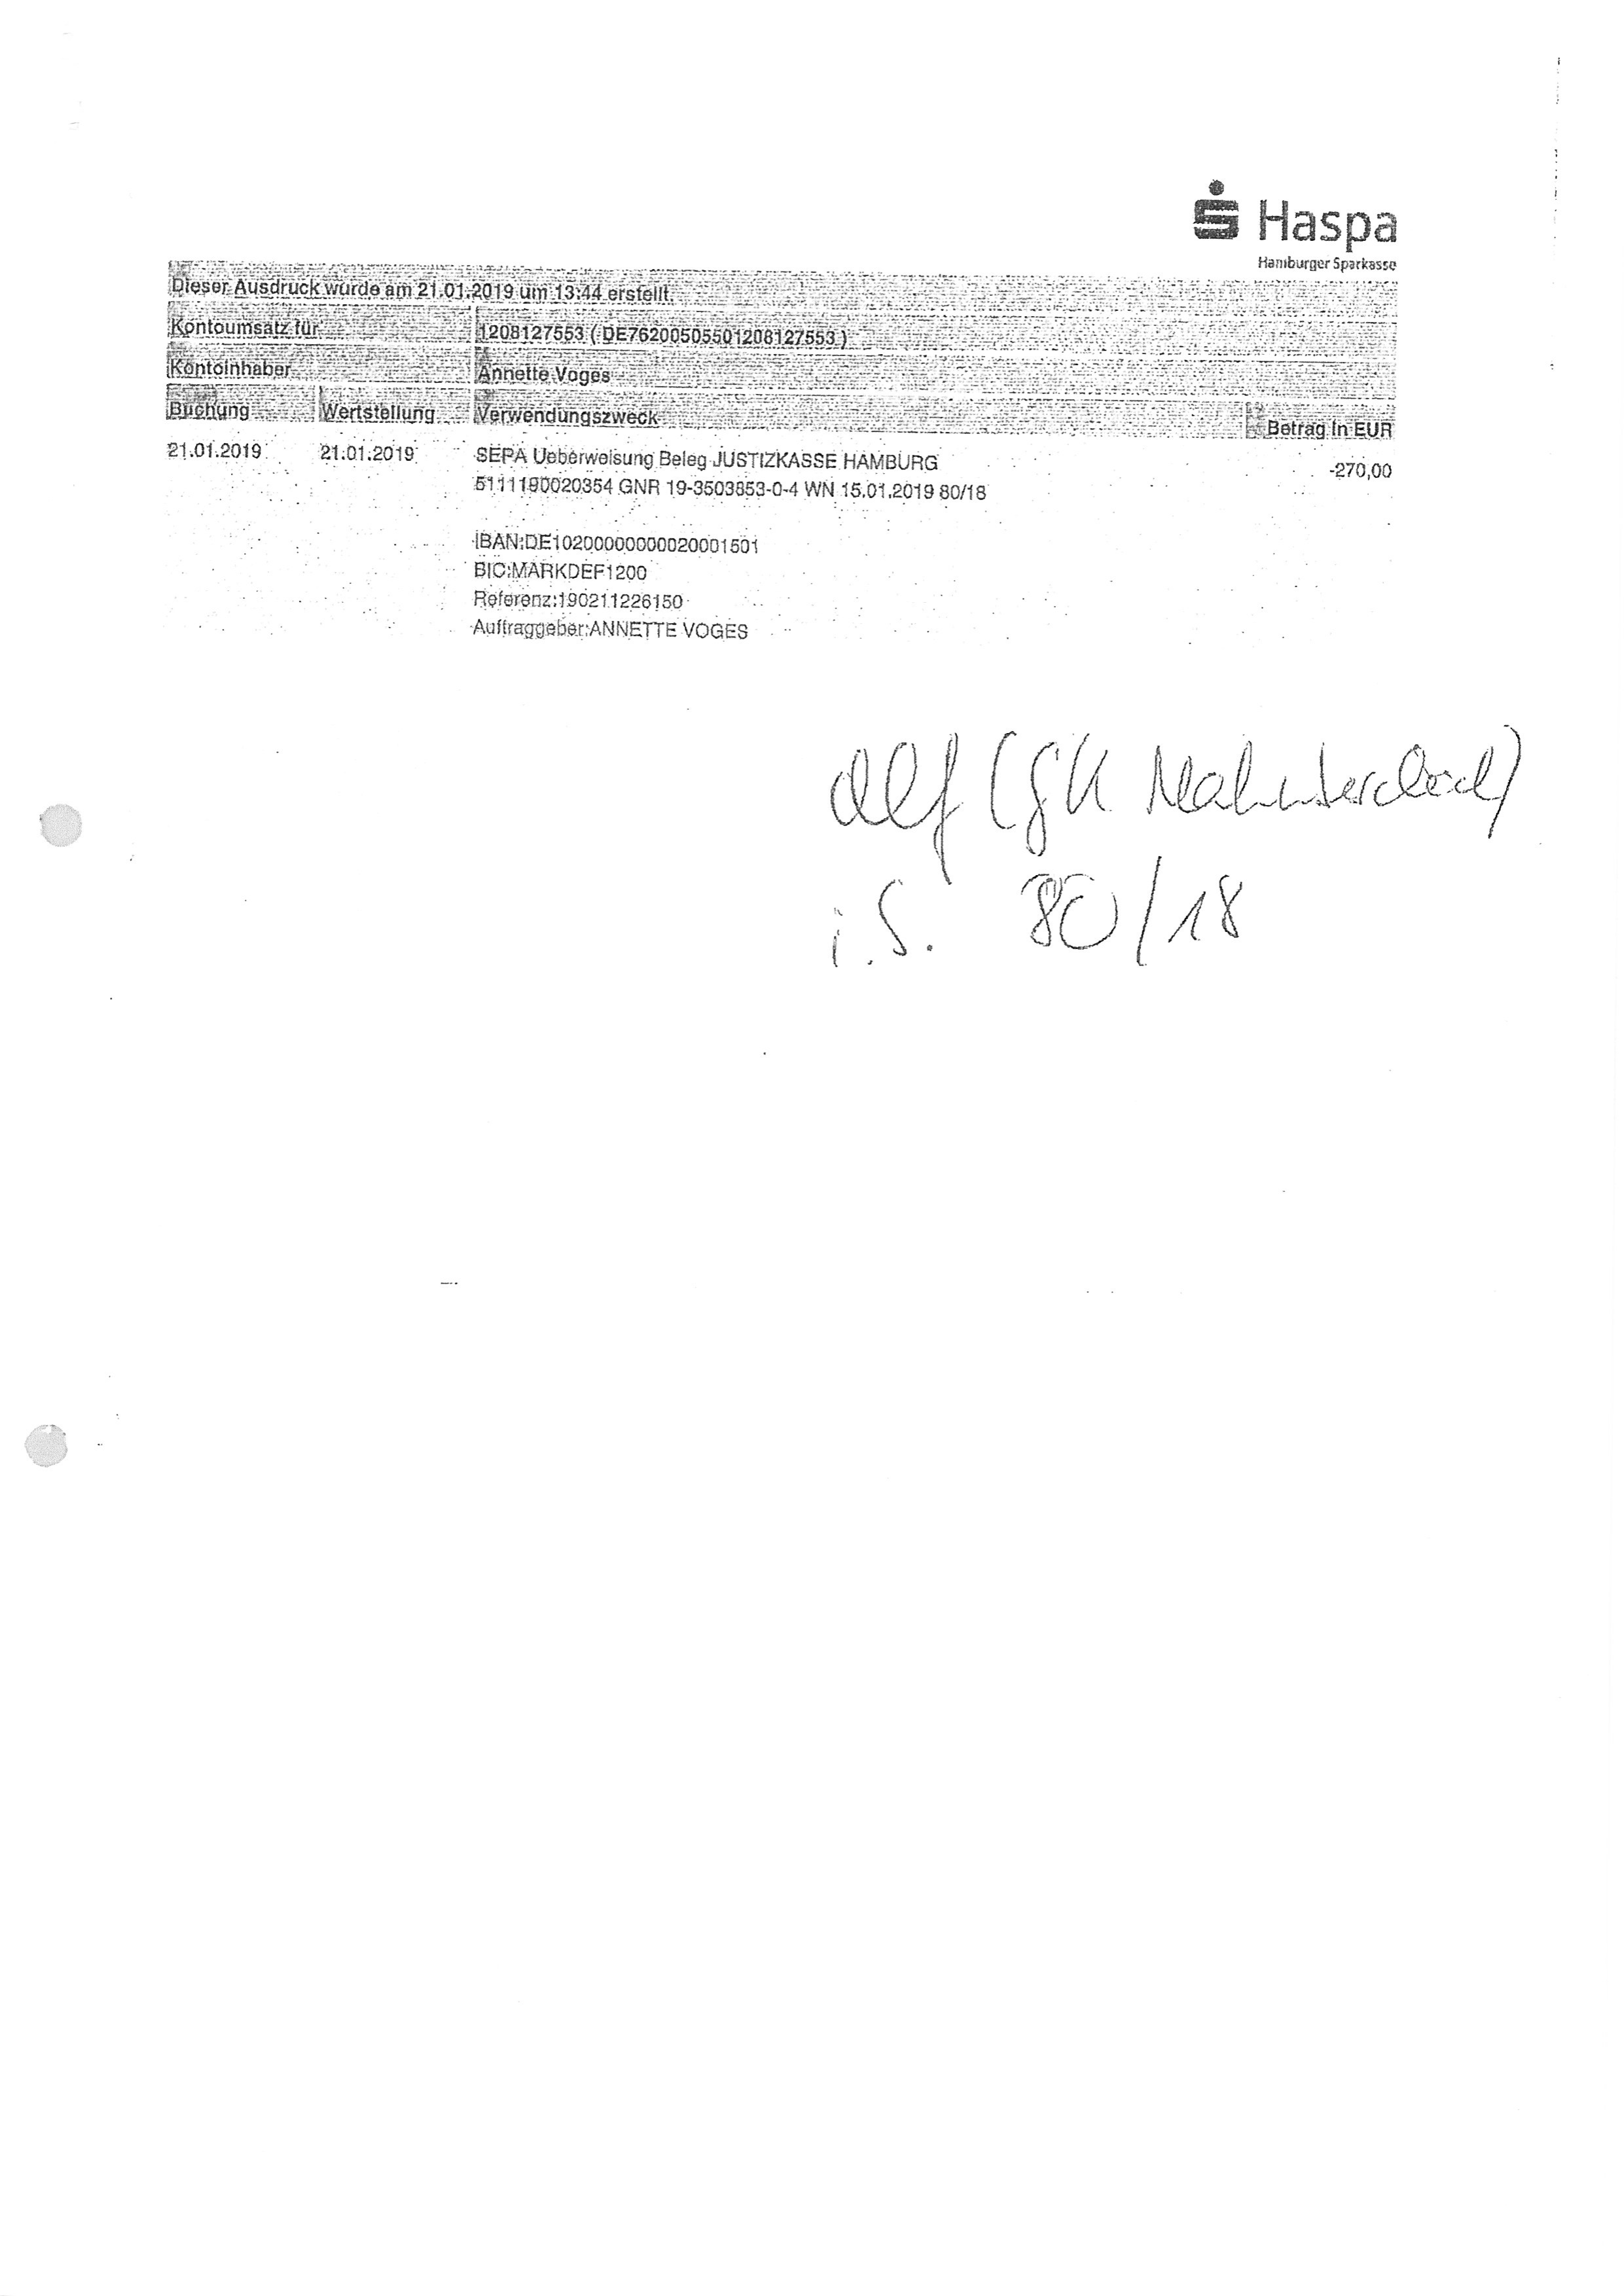 Haspa
Hamburger Sparkasse
Dieser Ausdruck wurde am 21.01.2019 um 13:44 erstellt.
Kontoumsatz für 1208127553 ( DE76200505501208127553 )
Kontoinhaber Annette Voges
Buchung Wertstellung Verwendungszweck Betrag in EUR
21.01.2019 21.01.2019 SEPA Ueberweisung Beleg JUSTIZKASSE HAMBURG -270,00
5111190020354 GNR 19-3503853-0-4 WN 15.01.2019 80/18
IBAN:DE10200000000020001501
BIC:MARKDEF1200
Referenz:190211226150
Auftraggeber:ANNETTE VOGES
(GK
i.S. 80/18